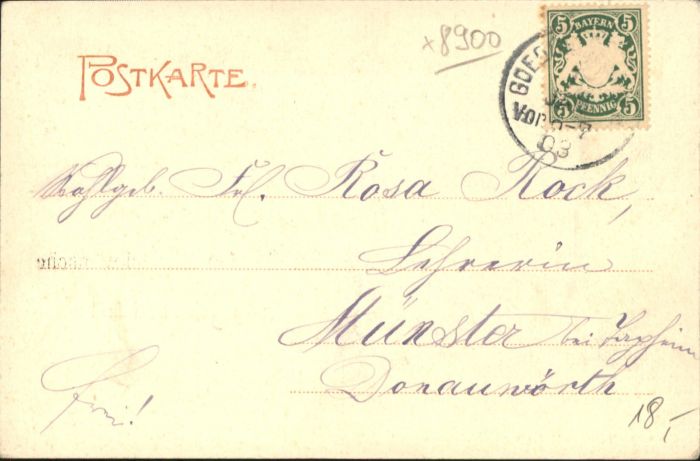 x8900
POSTKARTE.
5 BAYERN 5
5 PFENNIG 5
VOR. 6-7
03
Wohlgeb. Frl. Rosa Rock,
Lehrerin
Münster bei
Donauwörth
Frei!
18,-